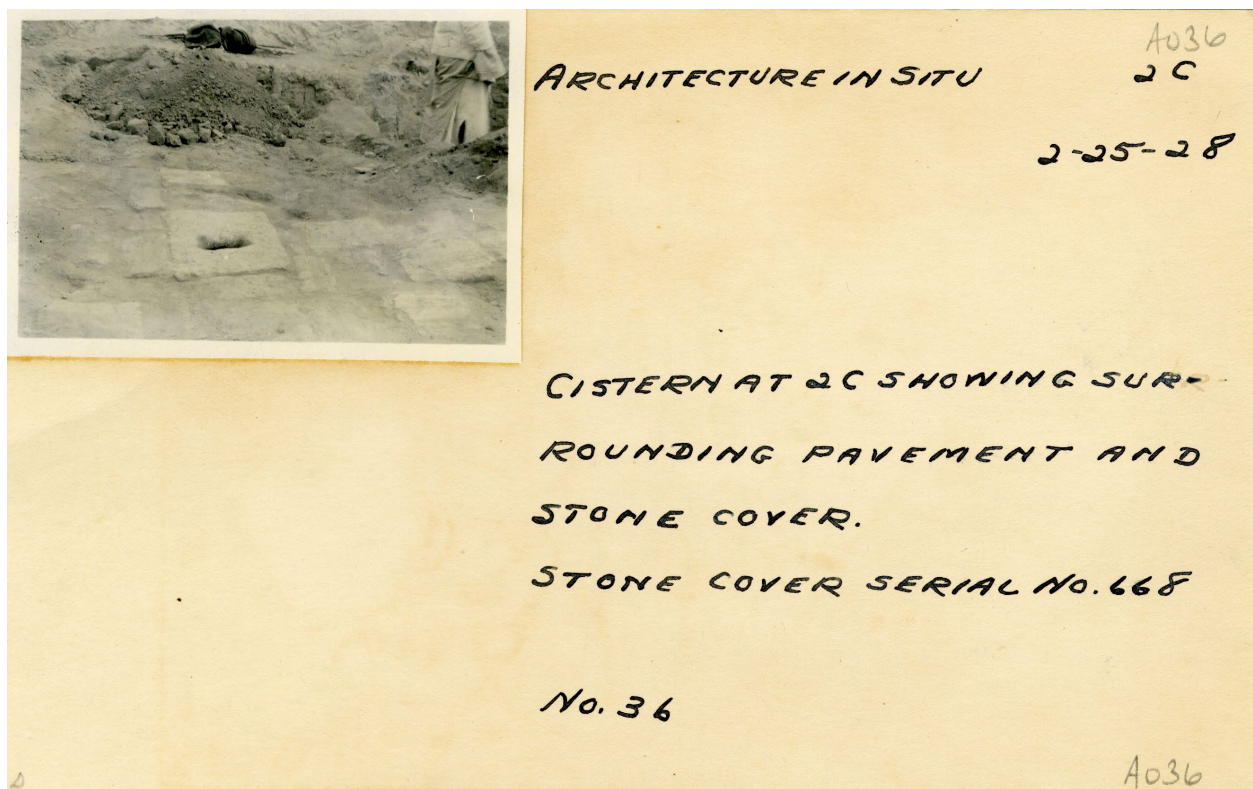 A036
ARCHITECTURE IN SITU 2C
2-25-28
CISTERN AT 2C SHOWING SUR-
ROUNDING PAVEMENT AND
STONE COVER.
STONE COVER SERIAL NO. 668
No. 36
A036